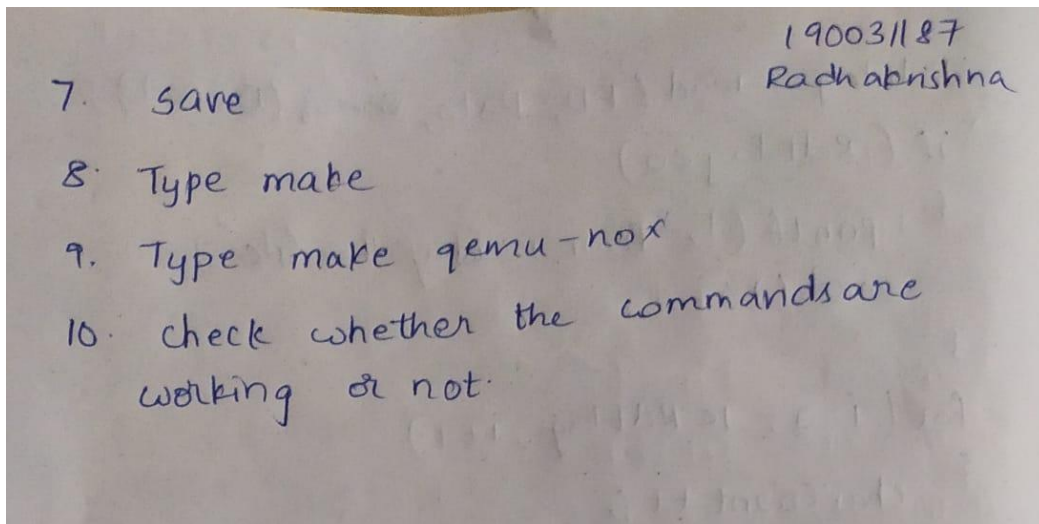 190031187
Radhakrishna
7. save
8. Type make
9. Type make qemu-nox
10. check whether the commands are
working or not.